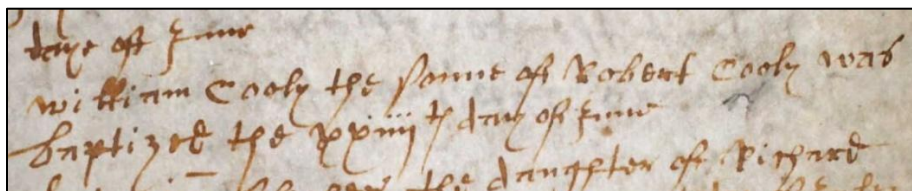 daye of June
William Cooly the sonne of Robert Cooly was
baptized the xxiiii th day of June
the daughter of Richard